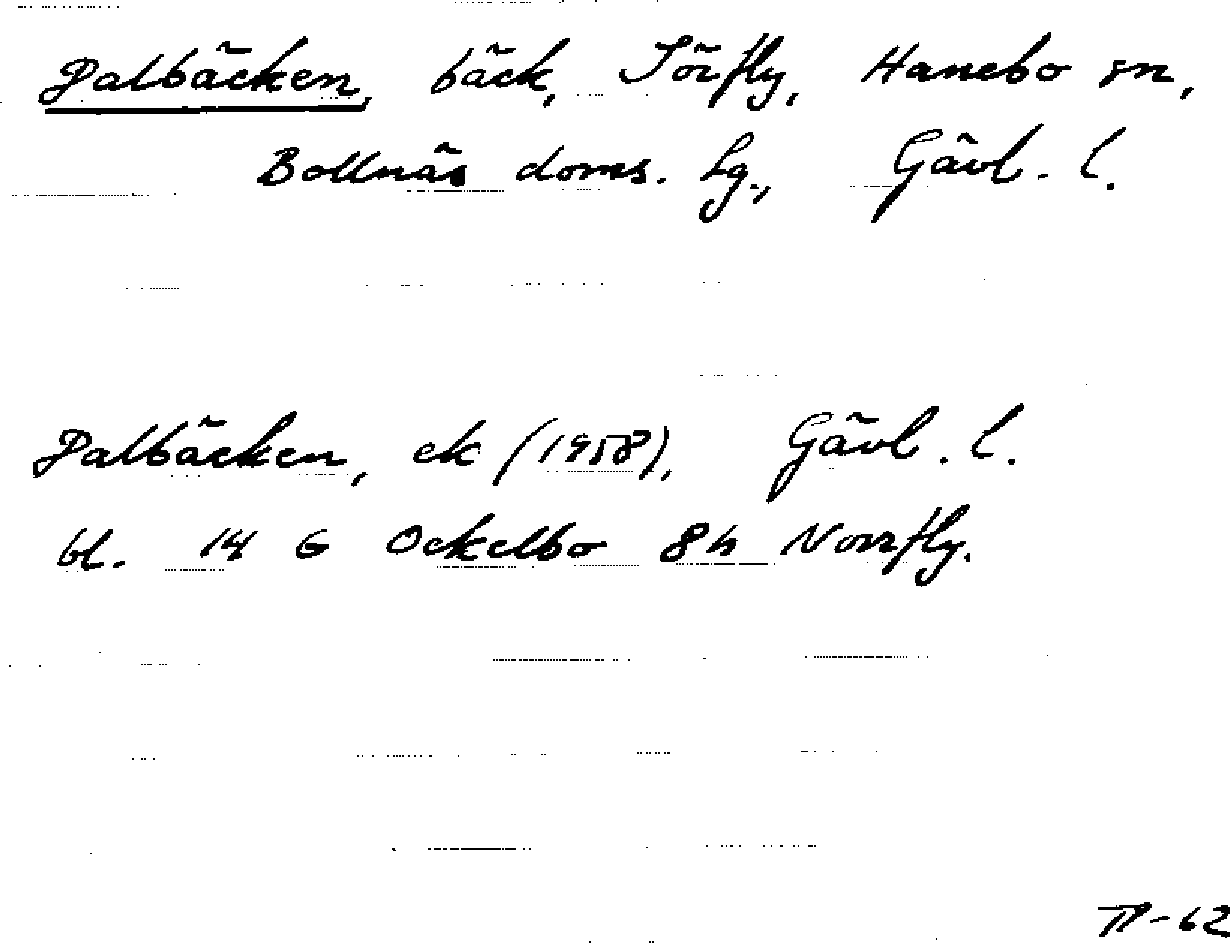 Dalbäcken, bäck, Sörfly, Hanebo sn,
Bollnäs doms. lg., Gävl. l.
Dalbäcken, ek (1958), Gävl. l.
bl. 14 G Ockelbo 8 h Norrfly.